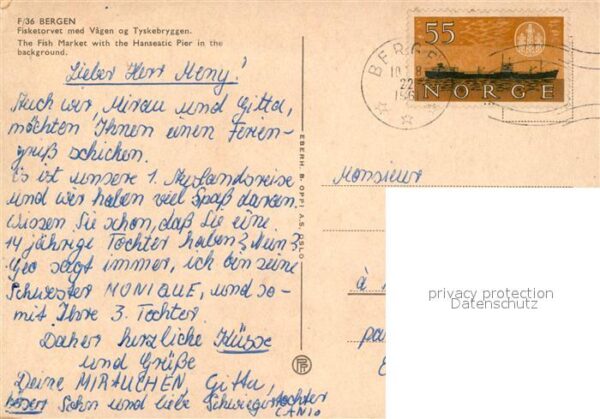 F/36 BERGEN
Fisketorvet med Vågen og Tyskebryggen.
The Fish Market with the Hanseatic Pier in the
background.
Lieber Herr Meny!
Auch wir, Mirau und Gitta,
möchten Ihnen einen Ferien-
gruß schicken.
Es ist unsere 1. Auslandsreise
und wir haben viel Spaß daran.
Wissen Sie schon, daß Sie eine
14 jährige Tochter haben? Nun?
Geo sagt immer, ich bin seine
Schwester MONIQUE, und so-
mit Ihre 3. Tochter.
Daher herzliche Küsse
und Grüße
Deine MIRAUCHEN, Gitta,
Sohn und liebe Schwiegertochter
EBERH. B. OPPI A.S. OSLO
55
NORGE
BERGEN
22
Monsieur
à
privacy protection
Datenschutz